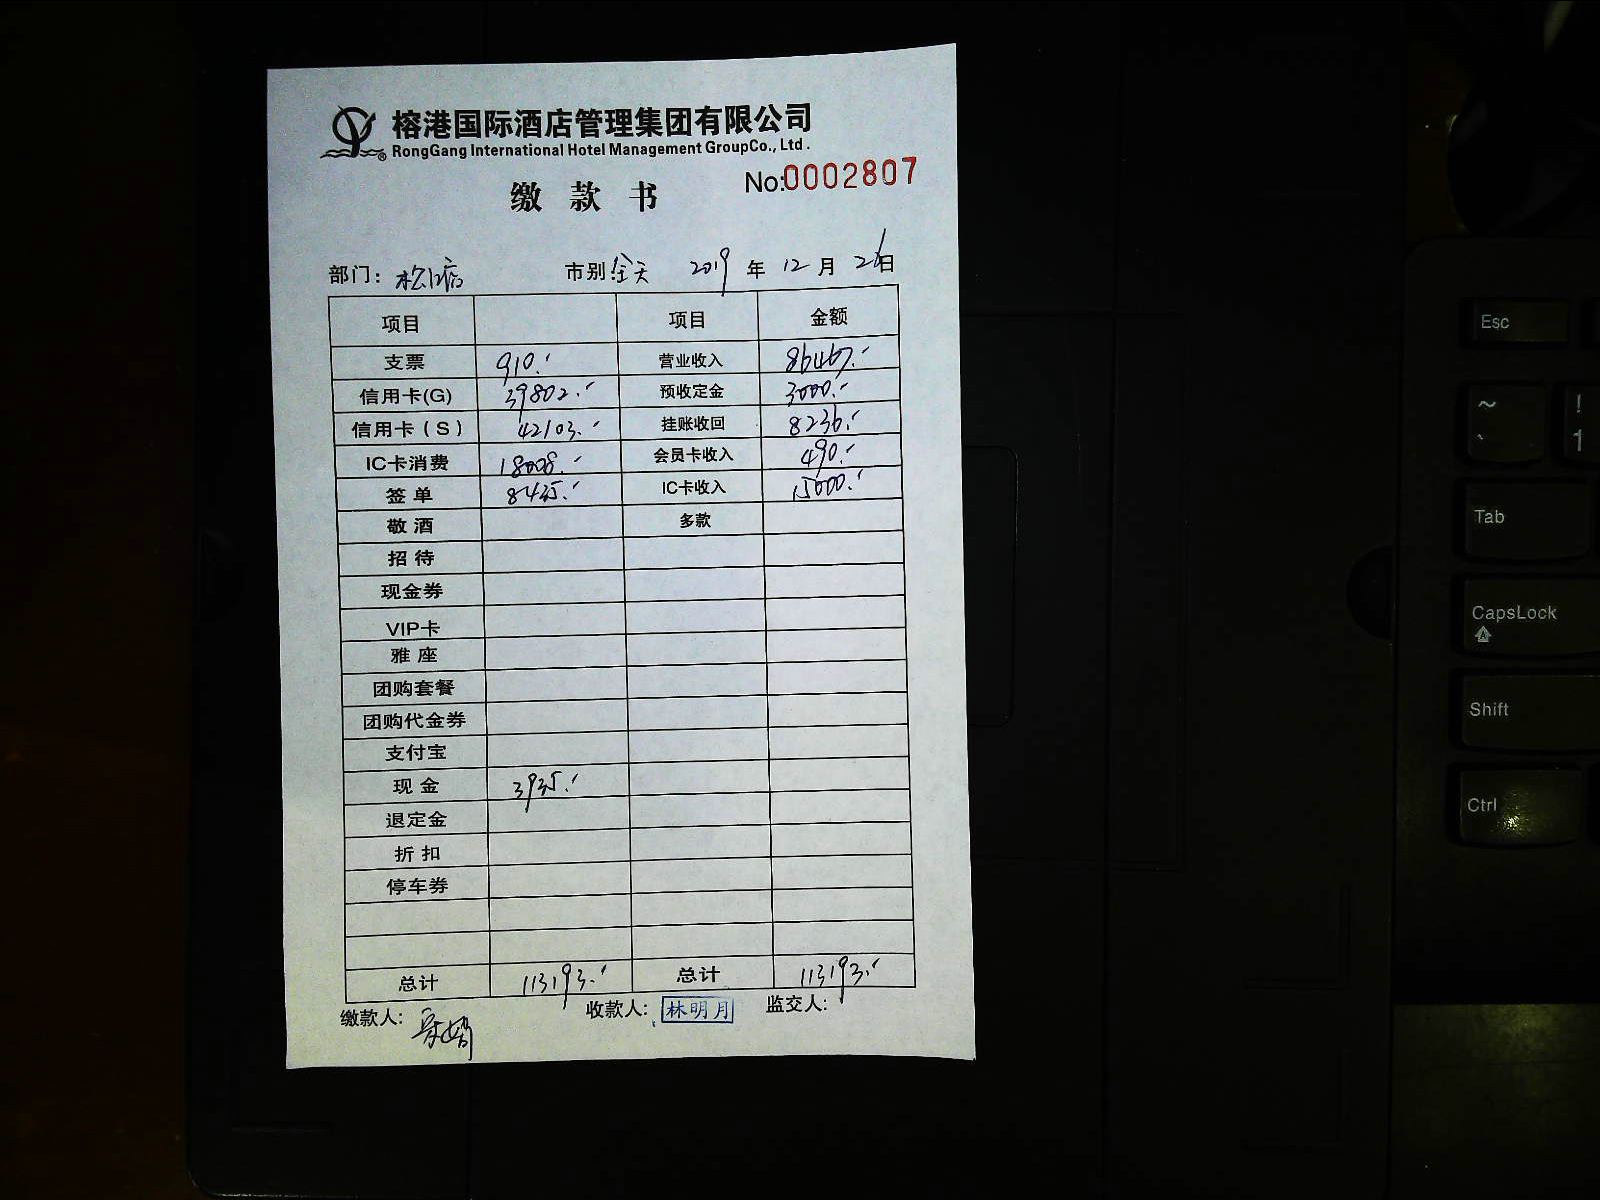 榕港国际酒店管理集团有限公司
RongGang International Hotel Management GroupCo., Ltd .
缴 款 书
No:0002807
部门：
市别:全天 2019 年 12 月 26日
项目 项目 金额
支票 910.- 营业收入 86467.-
信用卡(G) 39802.- 预收定金 3000.-
信用卡（S） 42103.- 挂账收回 8236.-
IC卡消费 18008.- 会员卡收入 490.-
签 单 8435.- IC卡收入 15000.-
敬 酒 多款
招 待
现金券
VIP卡
雅 座
团购套餐
团购代金券
支付宝
现 金 3935.-
退定金
折 扣
停车券
总计 113193.- 总计 113193.-
缴款人: 收款人: 林明月 监交人:
Esc
~ !
` 1
Tab
CapsLock
Shift
Ctrl